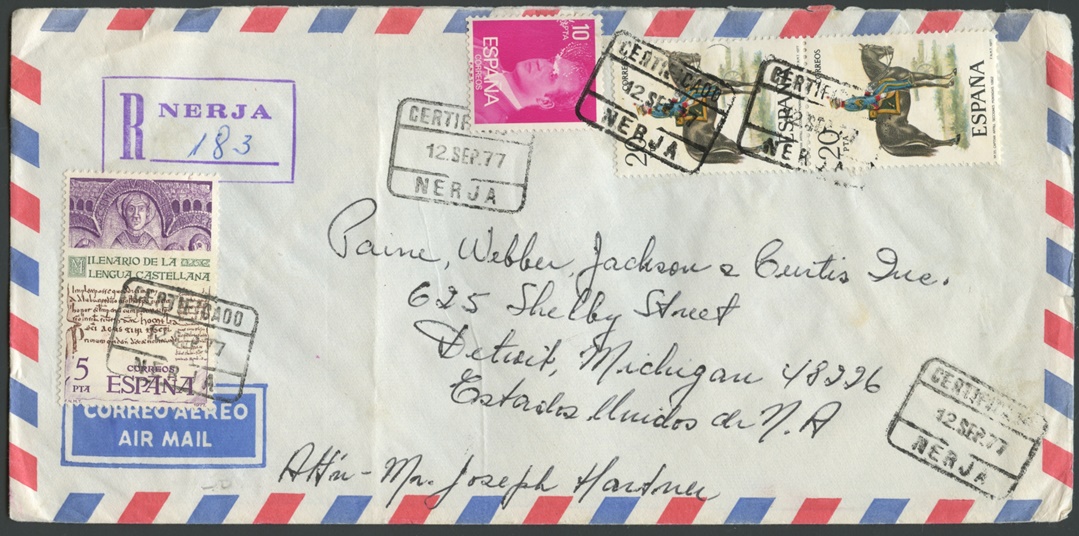 R NERJA
183
10
PTA
ESPAÑA
CORREOS
CERTIFICADO
12.SEP.77
NERJA
CORREOS
20
ESPAÑA
CERTIFICADO
12.SEP.77
NERJA
CORREOS
20
PTA
ESPAÑA
CERTIFI
12.SEP.77
NERJA
MILENARIO DE LA
LENGUA CASTELLANA
CORREOS
5
PTA
ESPAÑA
CERTIFICADO
12.SEP.77
NERJA
CORREO AEREO
AIR MAIL
Paine, Webber, Jackson & Curtis Inc.
625 Shelby Street
Detroit, Michigan 48226
Estados Unidos de N.A
Att'n - Mr. Joseph Hartner
CERTIFICADO
12.SEP.77
NERJA